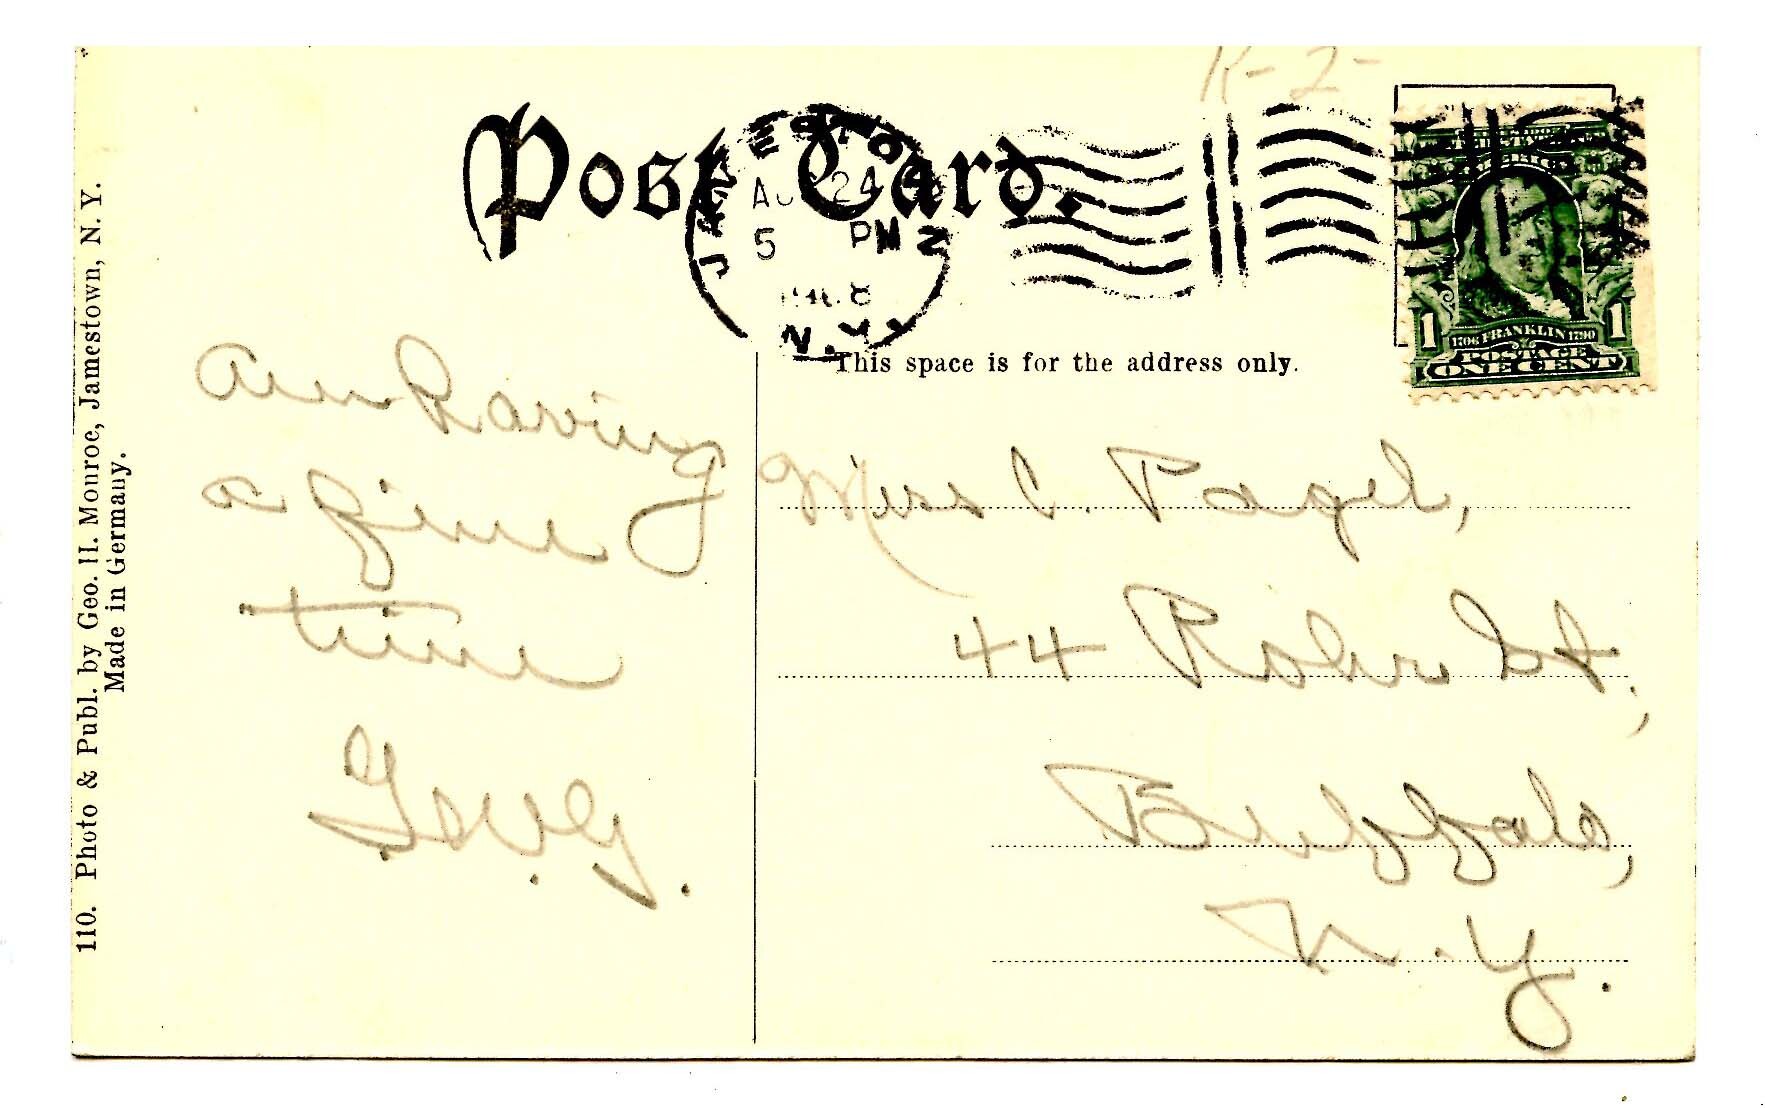 K-2-
Post Card.
JAMESTOWN
AUG 24
5 PM 2
N.Y.
1706 FRANKLIN 1790
1 1
POSTAGE
ONE CENT
This space is for the address only.
Am having
a fine
time
Miss C. Pagel,
44 Rohr St.,
Buffalo,
N.Y.
110. Photo & Publ. by Geo. H. Monroe, Jamestown, N. Y.
Made in Germany.